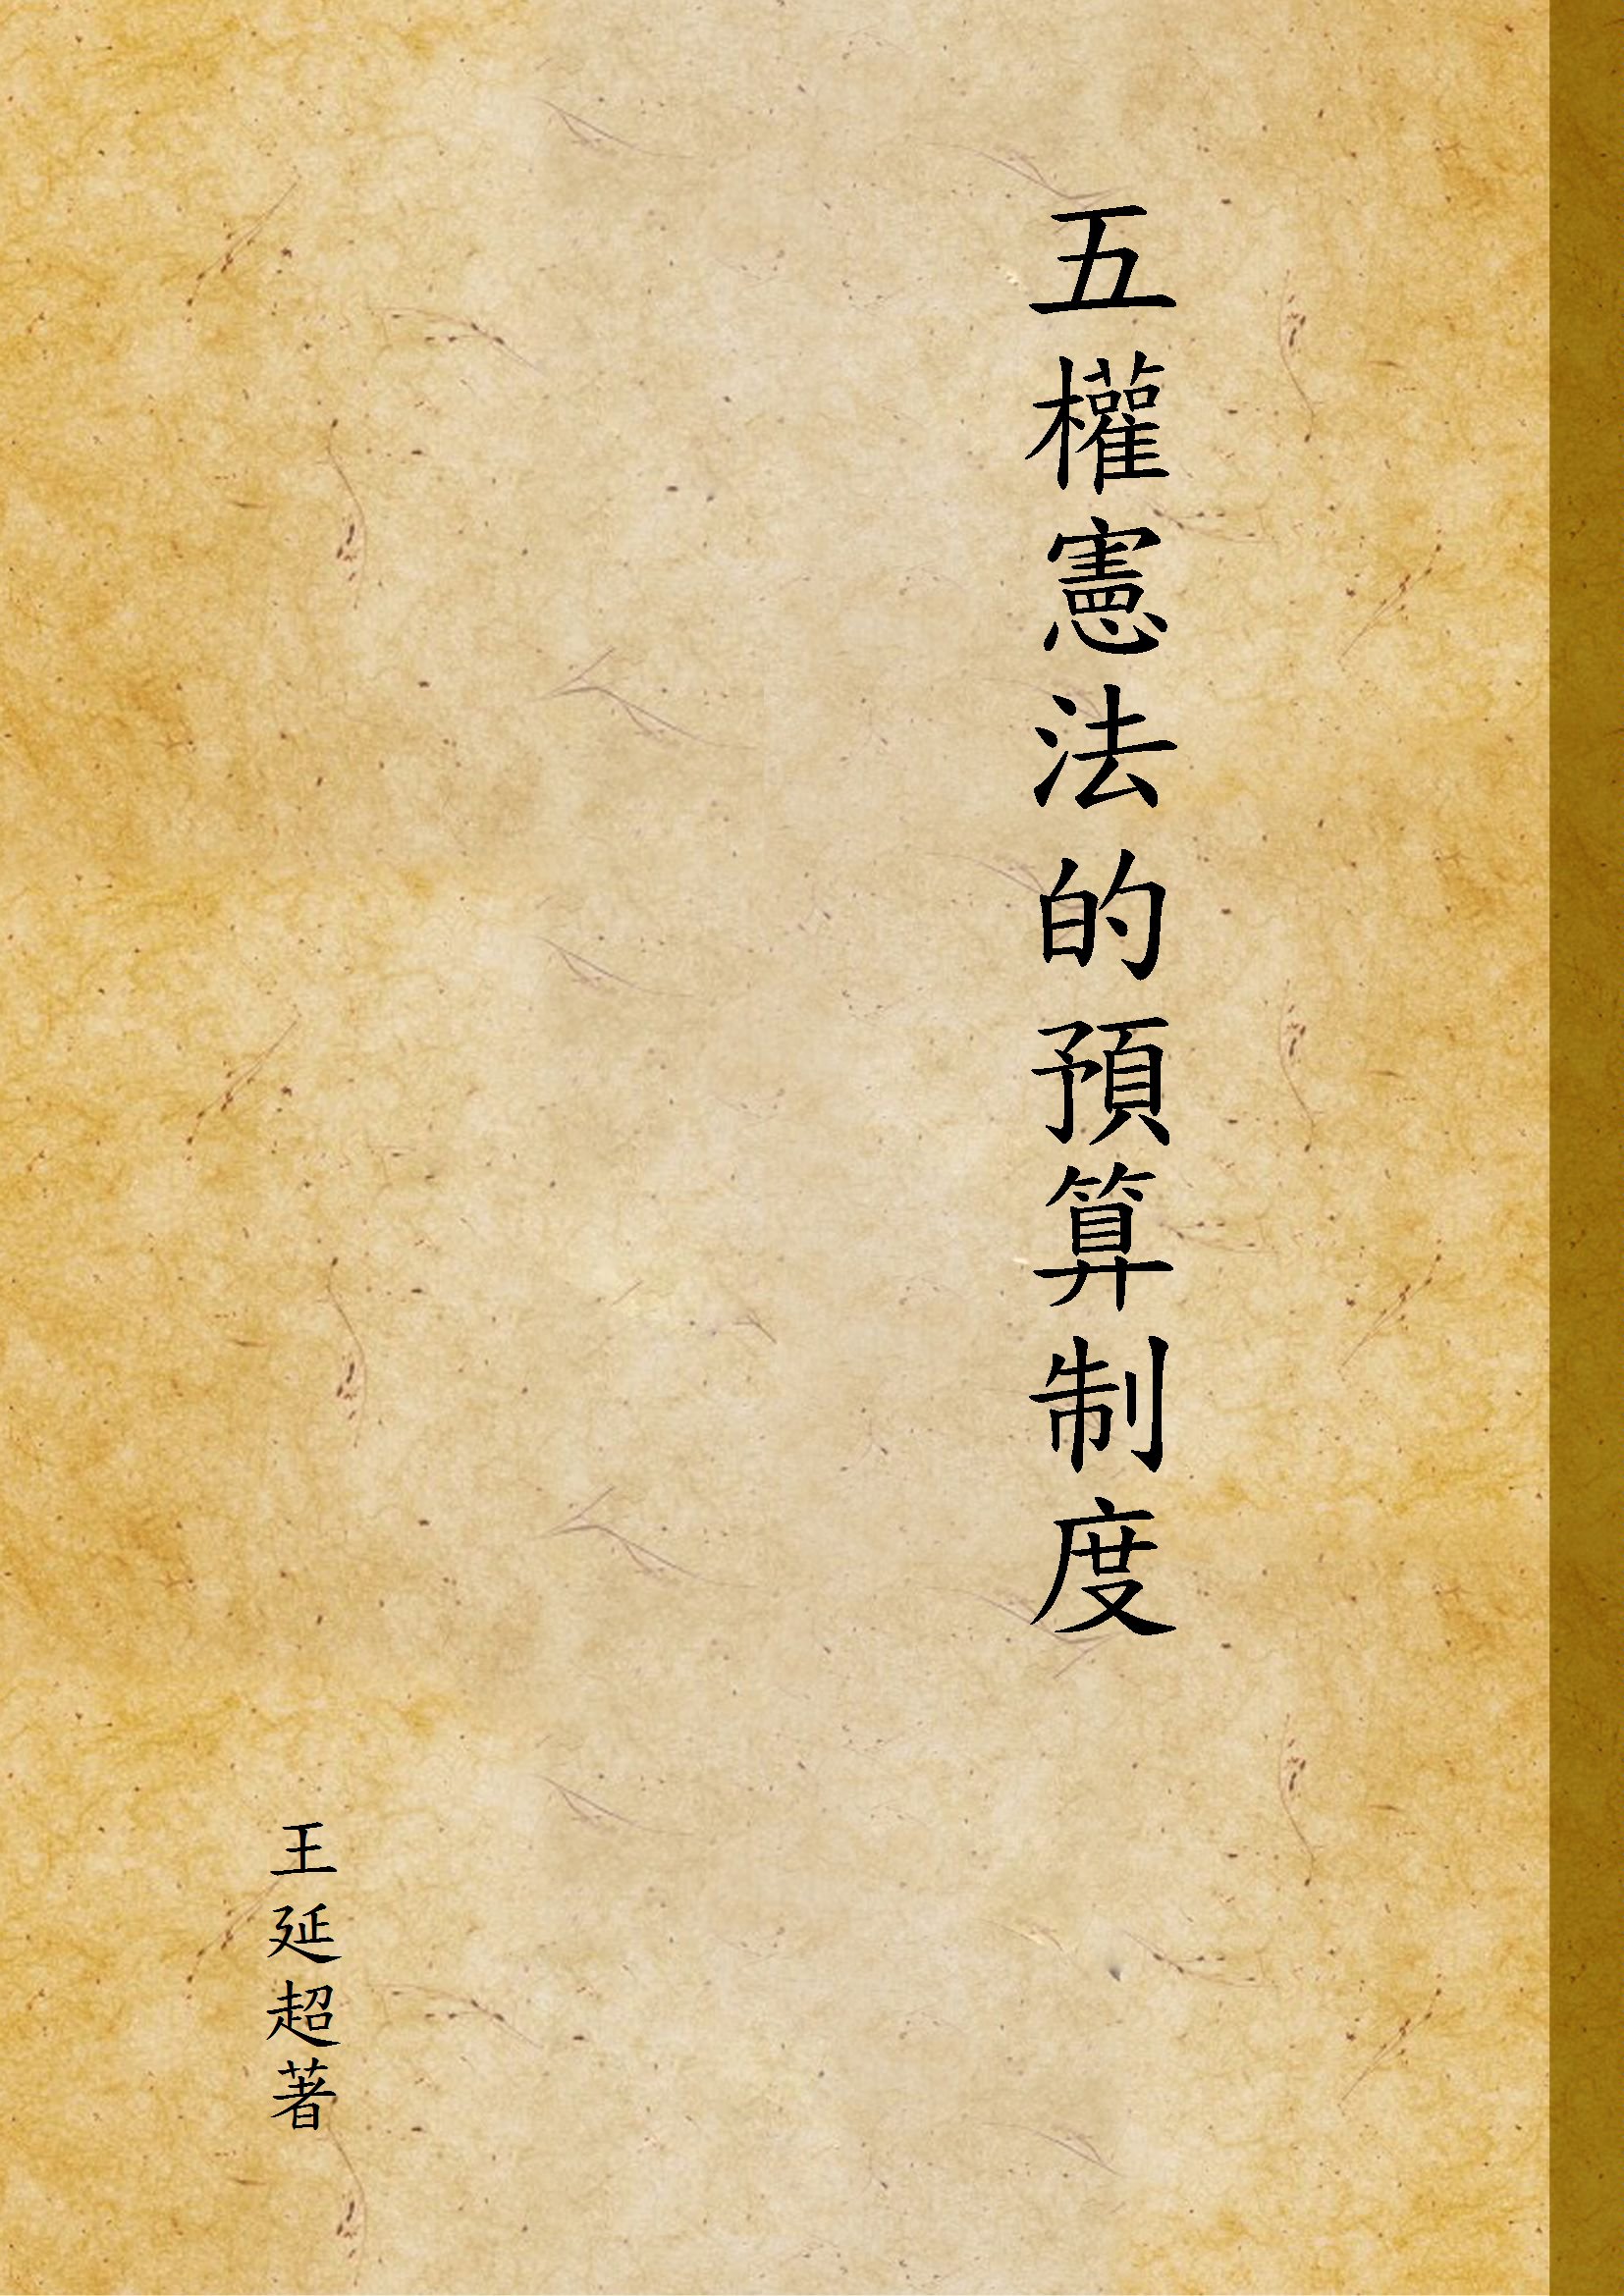 五權憲法的預算制度
王延超著